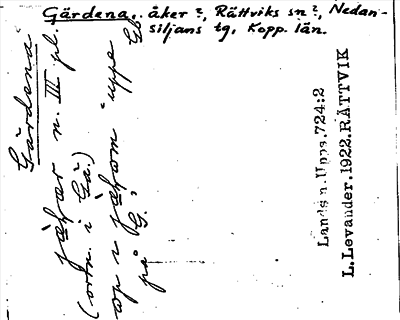 Gärdena, åker?, Rättviks sn?, Nedan-
siljans tg, Kopp. län.
Gärdena
n. III pl.
(ortn. i Gä.)
op i uppe
på G.
Landsm. Upps. 724:2
L. Levander. 1922. RÄTTVIK